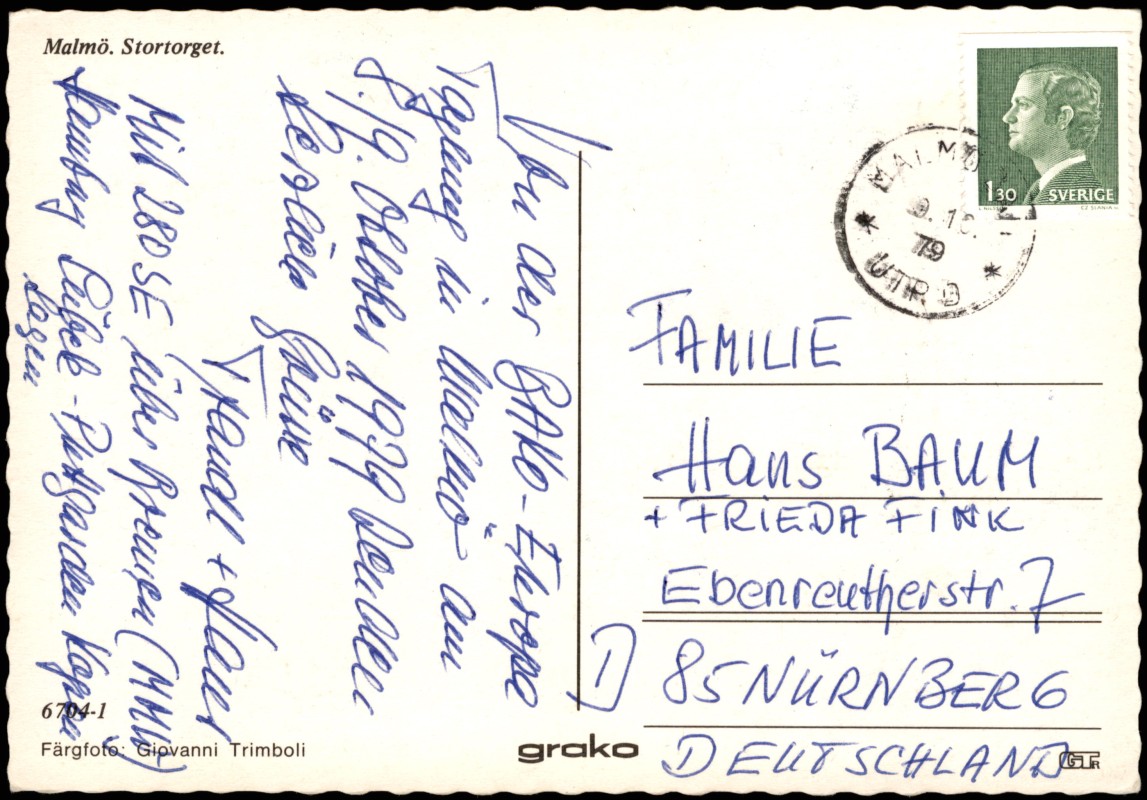 Malmö. Stortorget.
Von der BAKO-Europa
Tagung in Malmö am
8./9. Oktober 1979 senden
herzliche Grüsse
Traudl + Hans
Mit 280 SE über Bremen (MMW)
Hamburg Lübeck-Puttgarden Kopen
hagen
6704-1
Färgfoto: Giovanni Trimboli
grako
GTR
1 30
SVERIGE
CZ SLANIA SC
MALMÖ
9.10.
79
UTR
FAMILIE
Hans BAUM
+ FRIEDA FINK
Ebenreutherstr. 7
D 85 NÜRNBERG
DEUTSCHLAND